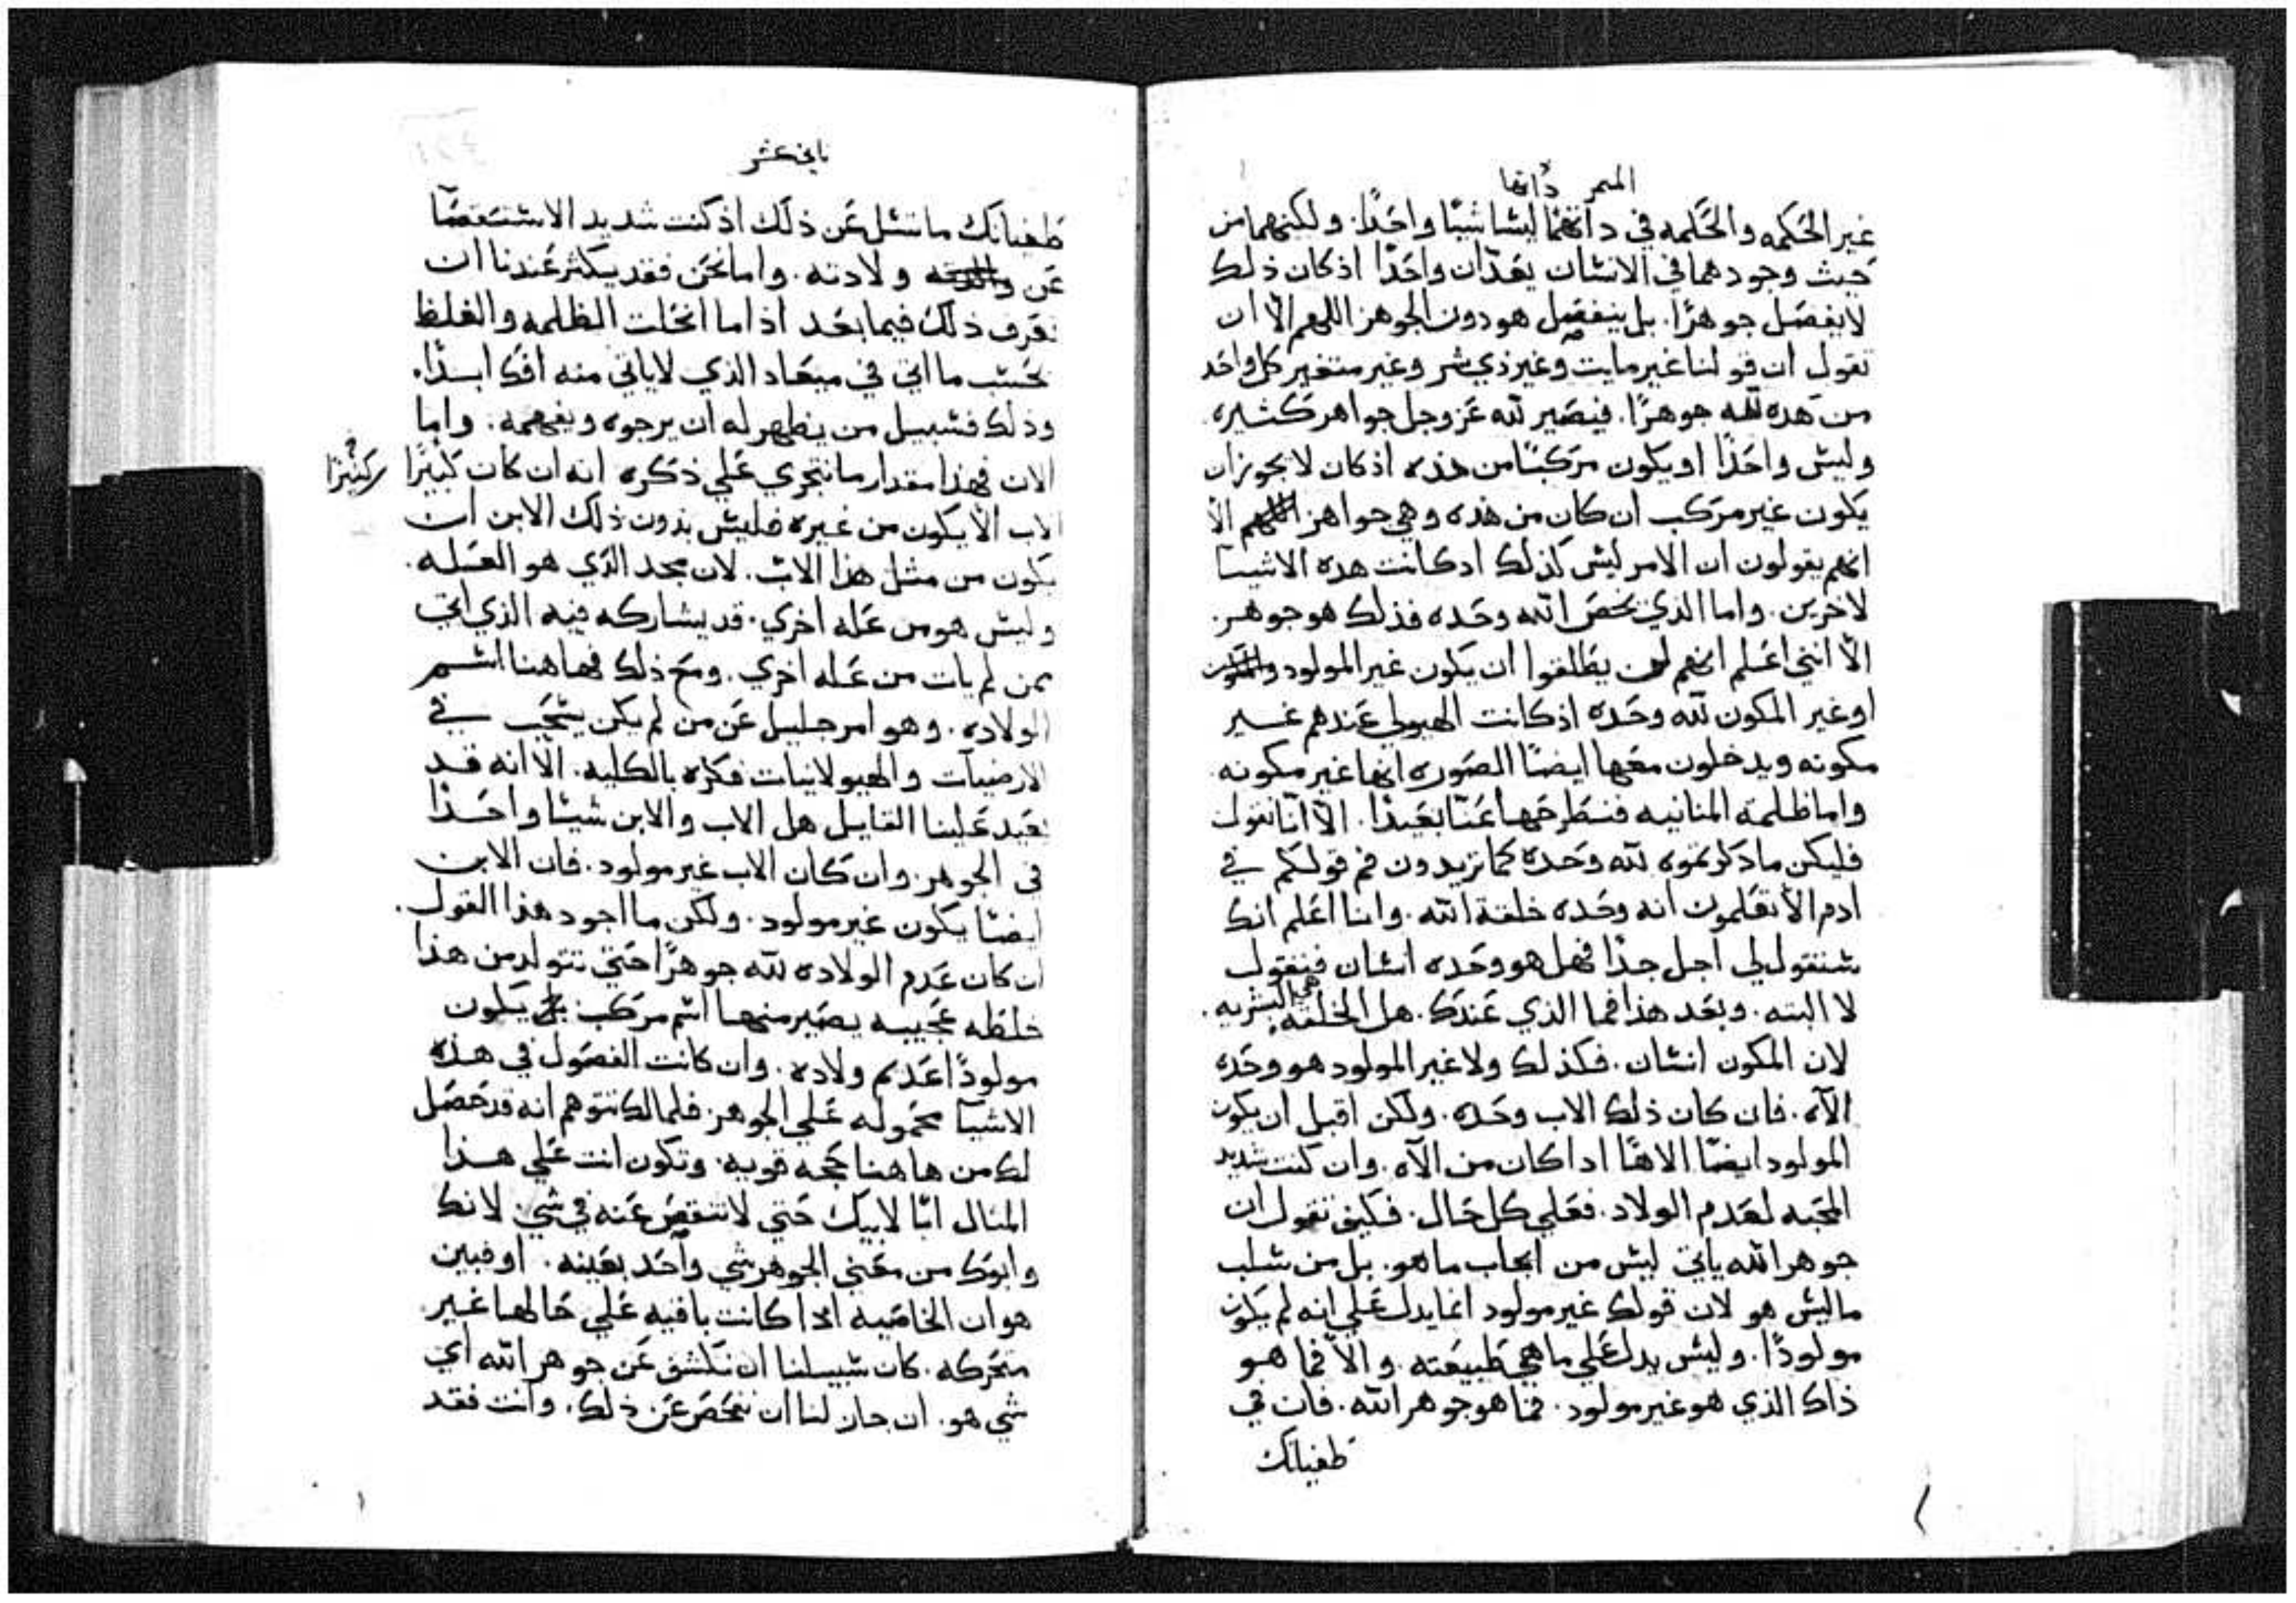 الميمر ذاتها
غير الحكمه والحكمه في داتهما ليسا شيًا واحدًا. ولكنهما من
حيث وجودهما في الانسان يعدّان واحدًا اذ كان ذلك
لا يفصل جوهرًا. بل ينفصل هو دون الجوهر اللهم الّا ان
تقول ان قولنا غير مايت وغير ذي شر وغير متغير كل واحد
من هده لله جوهرًا. فيصير لله عز وجل جواهر كثيره
وليس واحدًا او يكون مركبًا من هذه اذ كان لا يجوز ان
يكون غير مركب ان كان من هذه وهي جواهر اللهم الّا
انهم يقولون ان الامر ليس كذلك ادكانت هده الاشيا
لاخرين. واما الذي يخص الله وحده فذلك هو جوهر.
الّا انني اعلم انهم لن يطلقوا ان يكون غير المولود
او غير المكون لله وحده اذ كانت الهيولي عندهم غير
مكونه ويدخلون معها ايضًا الصوره انها غير مكونه.
واما ظلمة المنانيه فنطرحها عنّا بعيدًا. الّا انّا نقول
فليكن ما ذكرتموه لله وحده كما تريدون فم قولكم في
ادم الا تعلمون انه وحده خلقة الله. وانا اعلم انك
ستقول لي اجل جدًا فهل هو وحده انسان فنقول
لا البته. وبعد هذا فما الذي عندك. هل الخلقه هي البشريه.
لان المكون انسان. فكذلك ولا غير المولود هو وحده
الآه. فان كان ذلك الاب وحده. ولكن اقبل ان يكون
المولود ايضًا الاهًا اداكان من الآه. وان كنت شديد
المحبه لعدم الولاد. فعلي كل حال. فكيف تقول ان
جوهر الله ياتي ليس من ايجاب ما هو. بل من سلب
ما ليس هو لان قولك غير مولود انما يدل علي انه لم يكون
مولودًا. وليس يدل علي ما هي طبيعته. والّا فما هو
ذاك الذي هو غير مولود. فما هو جوهر الله. فان في
طغيانك
تاني عشر
طغيانك ما تسل عن ذلك اذ كنت شديد الاستقصا
عن ولادته. واما نحن فقد يكثر عندنا ان
نعرف ذلك فيما بعد اذا ما انحلت الظلمه والغلظ
بحسب ما اتي في ميعاد الذي لا ياتي منه افك ابدًا.
وذلك فسبيل من يظهر له ان يرجوه ويفهمه. واما
الان فهذا مقدار ما نتجري علي ذكره انه ان كان كبيرًا كثيرًا
الاب الّا يكون من غيره فليس بدون ذلك الابن ان
يكون من مثل هذا الاب. لان مجد الذي هو العله.
وليس هو من عله اخري. قد يشاركه فيه الذي اتي
ممن لم يات من عله اخري. ومع ذلك فهاهنا اسم
الولاده. وهو امر جليل عن من لم يكن يسحب في
الارضيات والهيولانيات فكره بالكليه. الّا انه قد
يعيد علينا القايل هل الاب والابن شيئا واحدًا
في الجوهر. وان كان الاب غير مولود. فان الابن
ايضًا يكون غير مولود. ولكن ما اجود هذا القول.
ان كان عدم الولاده لله جوهرًا حتي تتولد من هذا
خلطه عجيبه يصير منهما اسم مركب يكون
مولودًا عديم ولاده. وان كانت الفصول في هذه
الاشيا محموله علي الجوهر. فلما لك تتوهم انه قد حصل
لك من هاهنا حجه قويه. وتكون انت علي هذا
المثال ابًا لابيك حتي لا تنقص عنه في شي. لانك
وابوك من معني الجوهر شي واحد بعينه. او فبين
هو ان الخاصيه ادا كانت باقيه علي حالها غير
متحركه. كان سبيلنا ان نكشف عن جوهر الله اي
شي هو. ان جاز لنا ان نفحص عن ذلك. وانت فقد